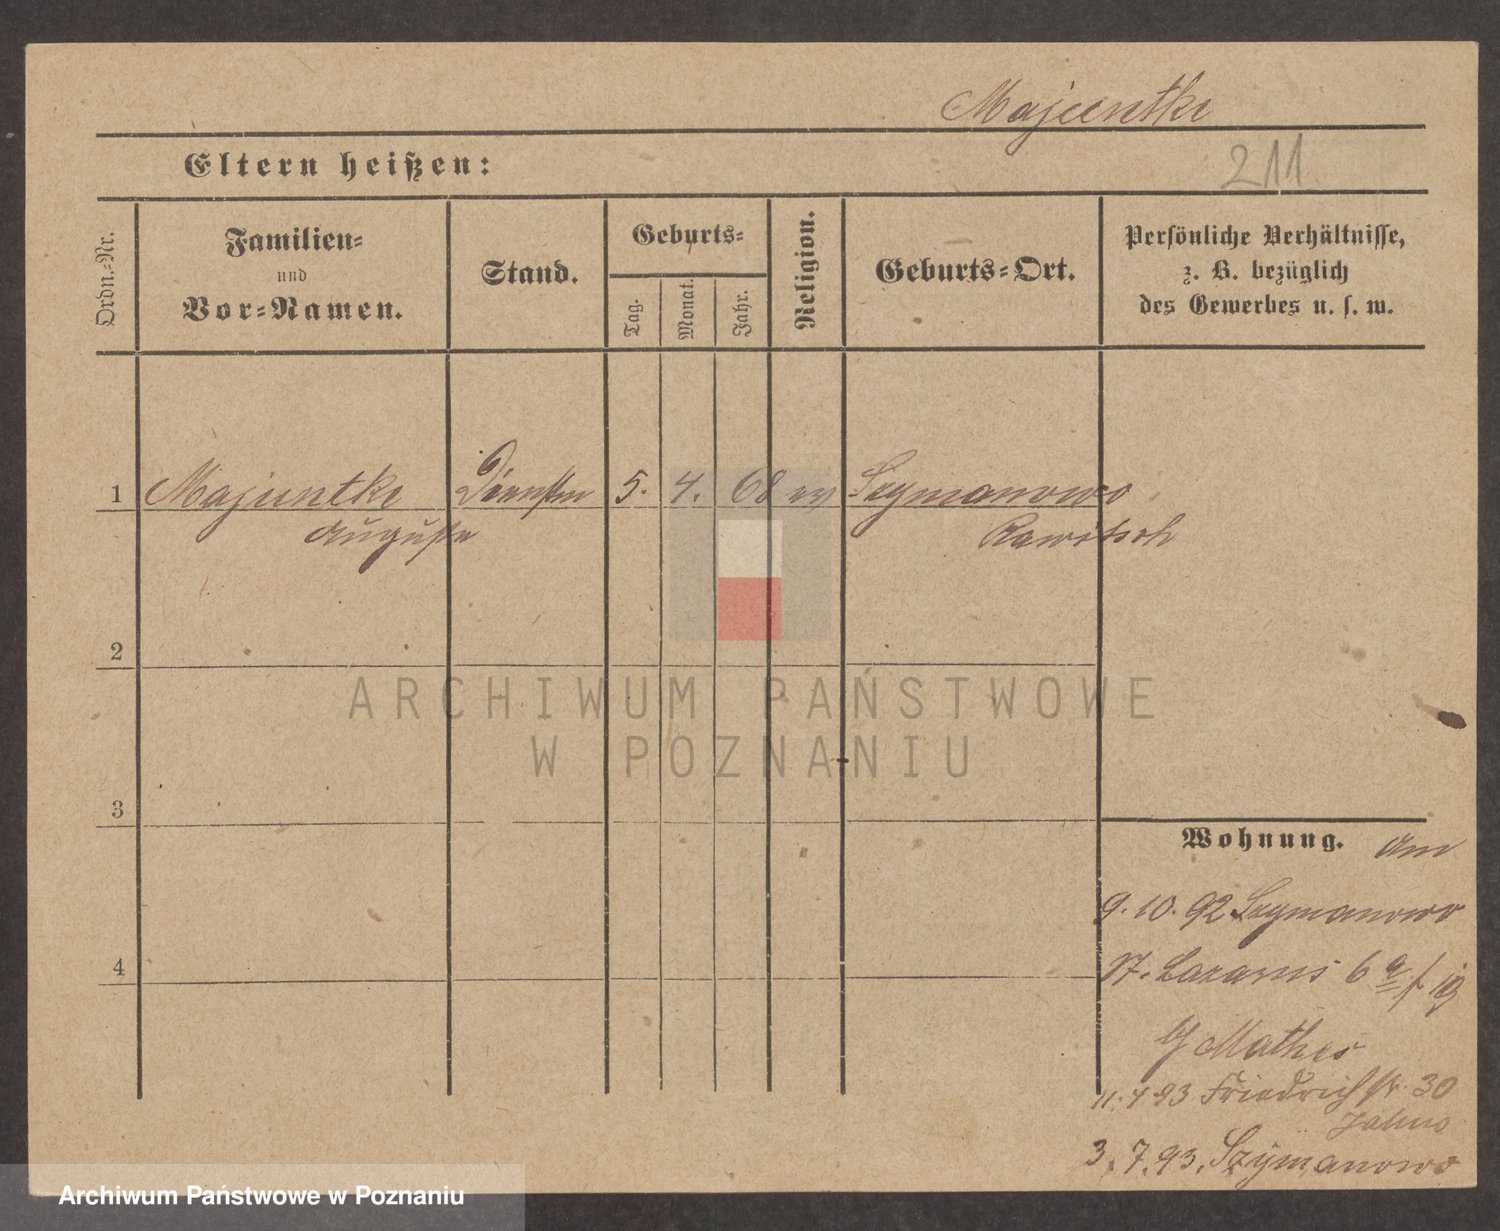 Majuntke
Eltern heißen:
211.
Ordn.-Nr.
Familien-
und
Vor-Namen.
Stand.
Geburts-
Tag.
Monat.
Jahr.
Religion.
Geburts-Ort.
Persönliche Verhältnisse,
z. B. bezüglich
des Gewerbes u. s. w.
1 Majuntke 5. 4. 68 ev Szymanowo
Auguste Rawitsch
2
ARCHIWUM PAŃSTWOWE
W POZNANIU
3
Wohnung. am
9. 10. 92 Szymanowo
St. Lazarus 6 a
Mathes
11. 4 93 Friedrichstr. 30
4
3. 7. 93. Szymanowo
Archiwum Państwowe w Poznaniu